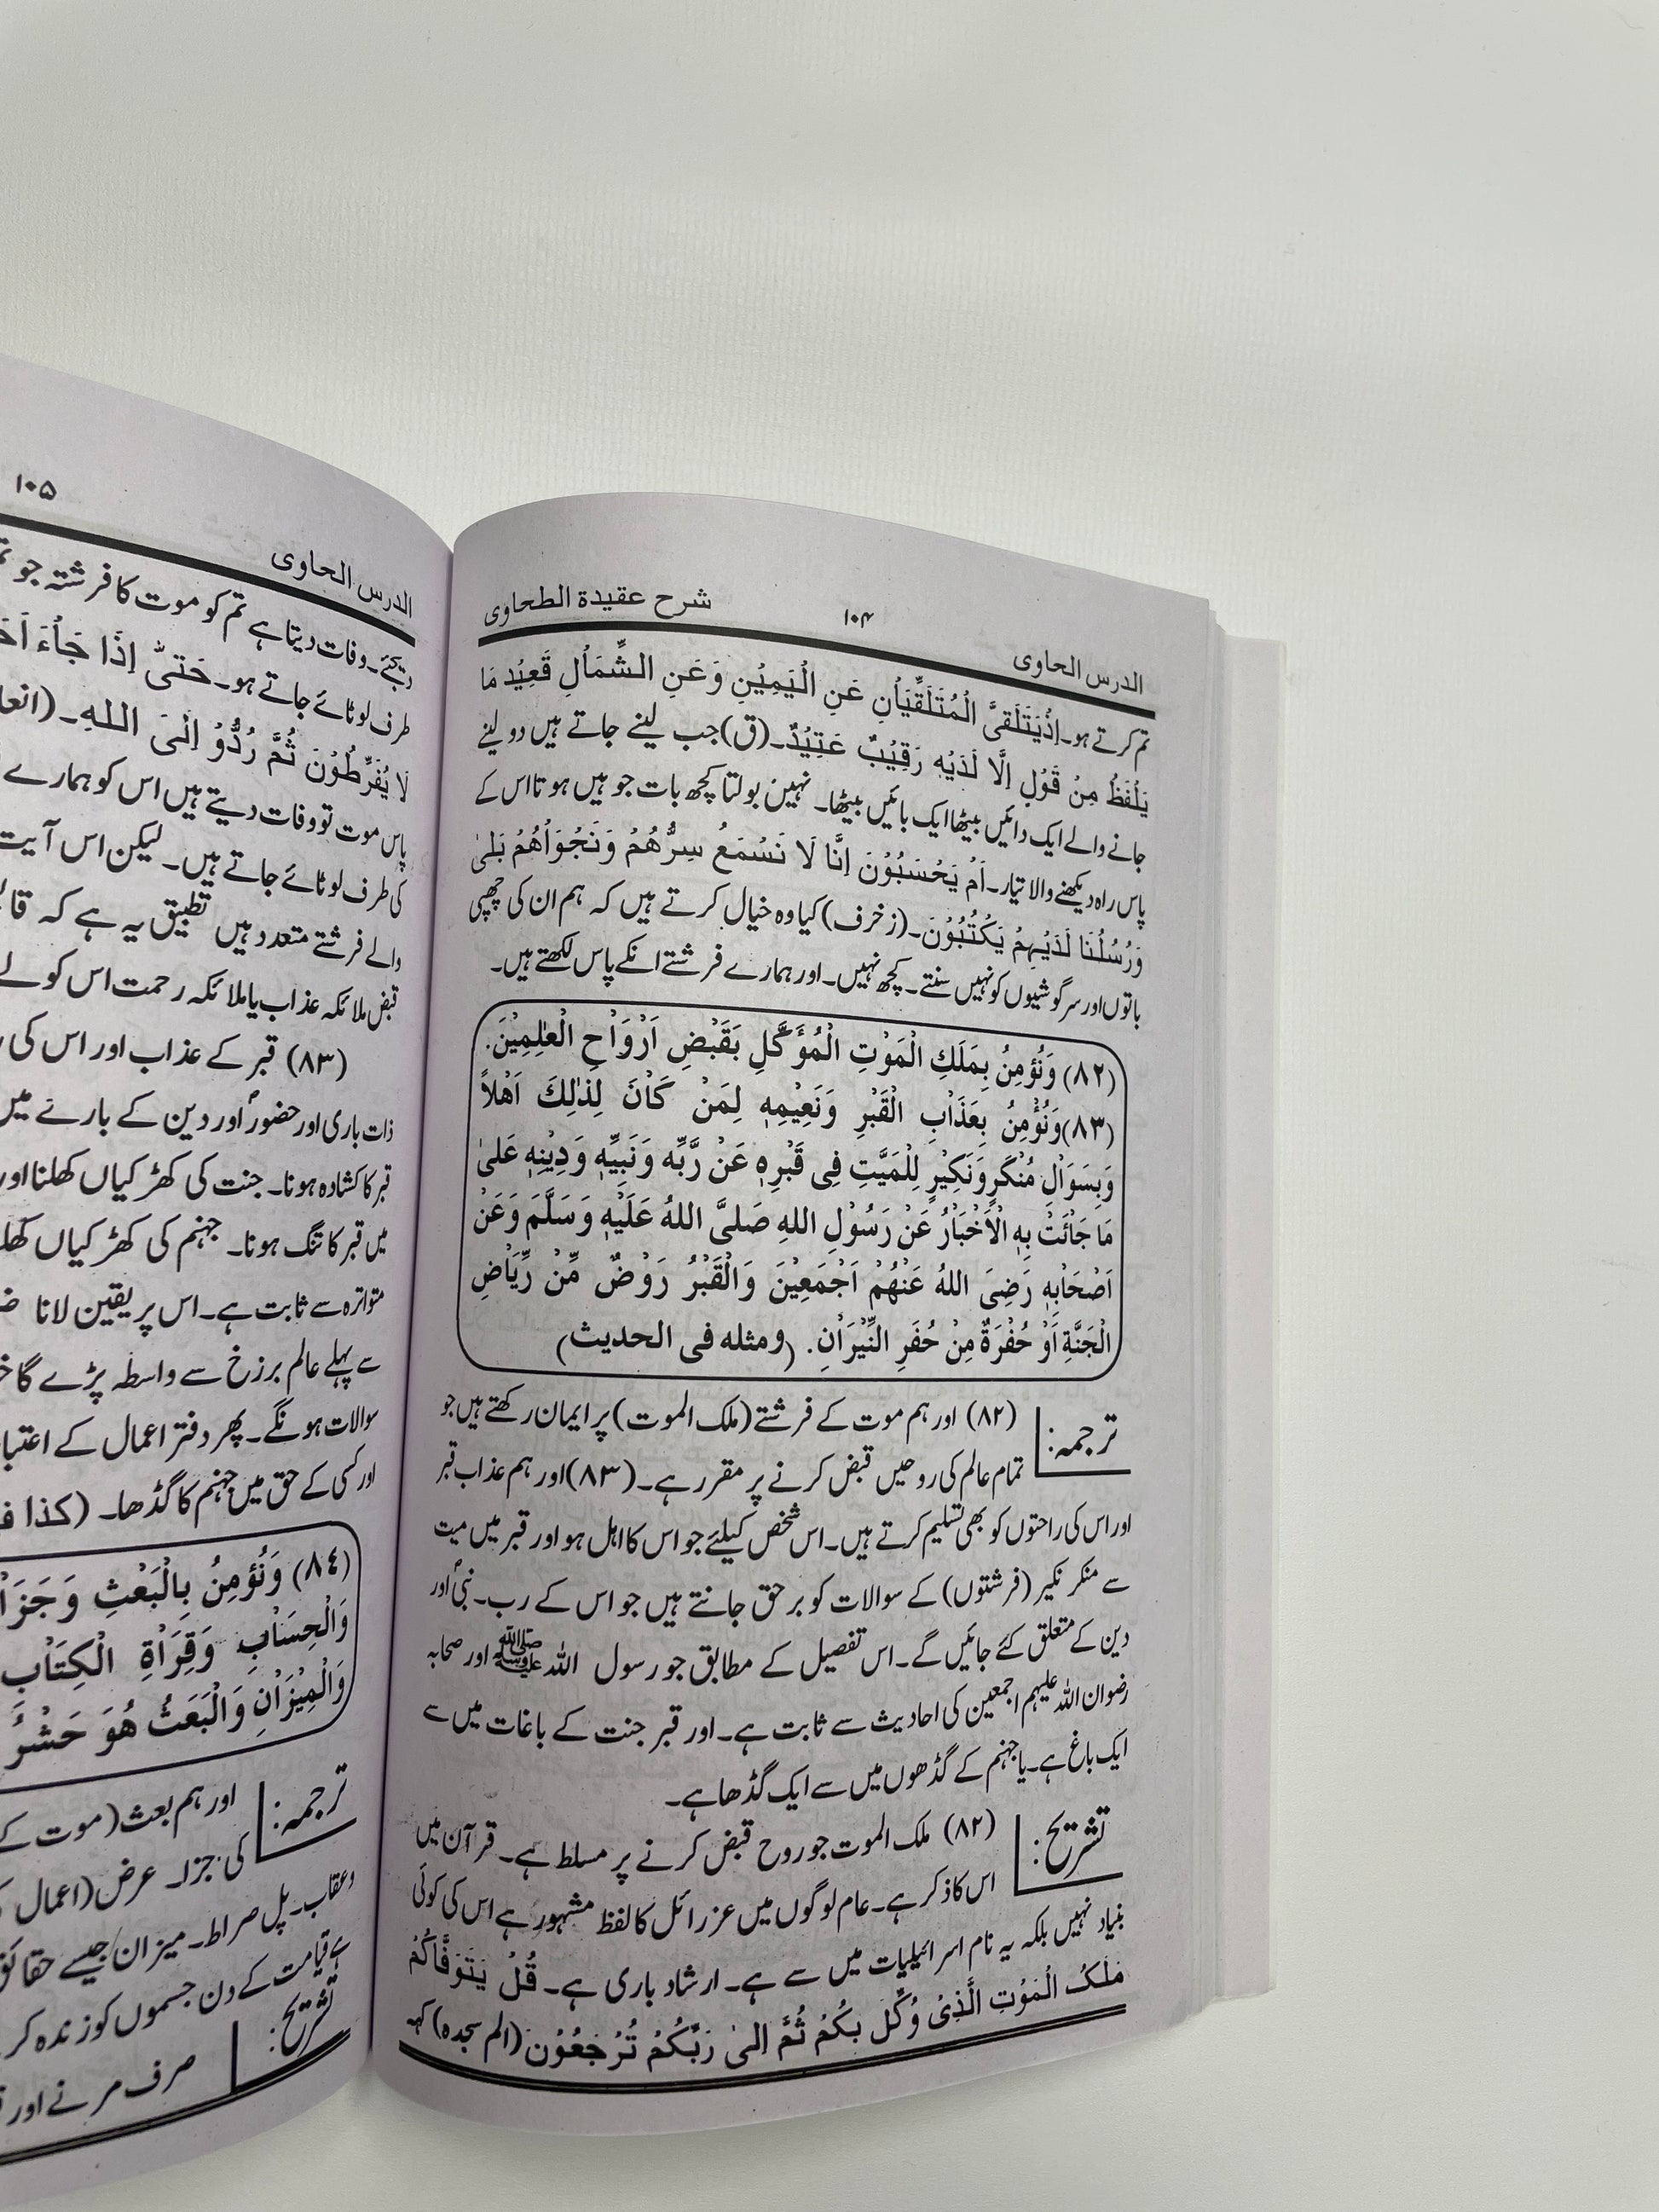 الدرس الحاوی ۱۰۴ شرح عقیدة الطحاوی
تم کرتے ہو۔اِذْیَتَلَقیَّ الْمُتَلَقِّیَاْنِ عَنِ الْیَمِیْنِ وَعَنِ الشِّمَاْلِ قَعِیْد مَا
یَلْفَظُ مِنْ قَوْلٍ اِلَّا لَدَیْهِ رَقِیْبٌ عَتِیْدٌ۔(ق)جب لینے جاتے ہیں دو لینے
جانے والے ایک دائیں بیٹھا ایک بائیں بیٹھا۔ نہین بولتا کچھ بات جو ہیں ہوتا اس کے
پاس راہ دیکھنے والا تیار۔اَمْ یَحْسَبُوْنَ اِنَّا لَا نَسْمَعُ سِرُّهُمْ وَنَجْوَاْهُمْ بَلیٰ
وَرُسُلُنَا لَدَیْهِمْ یَکْتُبُوْنَ۔(زخرف)کیا وہ خیال کرتے ہیں کہ ہم ان کی چھپی
باتوں اور سرگوشیوں کو نہیں سنتے۔ کچھ نہیں۔ اور ہمارے فرشتے انکے پاس لکھتے ہیں۔
(۸۲) وَنُؤمِنُ بِمَلَكِ الْمَوْتِ الْمُؤَکَّلِ بَقَبْضِ اَرْوَاْحِ الْعٰلِمِیْنَ.
(۸۳)وَنُؤْمِنُ بِعَذَاْبِ الْقَبْرِ وَنَعِیْمِهٖ لِمَنْ کَاْنَ لِذٰلِكَ اَهْلاً
وَبِسَوَاْلِ مُنْکَرٍوَنَکِیْرٍ لِلْمَیَّتِ فِی قَبْرِهٖ عَنْ رَّبِّهٖ وَنَبِیِّهٖ وَدِیْنِهٖ عَلیٰ
مَا جَائَتْ بِهٖ الْاَخْبَارُ عَنْ رَسُوْلِ اللهِ صَلیَّ اللهُ عَلَیْهِ وَسَلَّمَ وَعَنْ
اَصْحَاْبِهٖ رَضِیَ اللهُ عَنْهُمْ اَجْمَعِیْنَ وَالْقَبْرُ رَوْضٌ مِّنْ رِّیَاْضِ
الْجَنَّةِ اَوْ حُفْرَةٌ مِنْ حُفَرِ النِّیْرَاْنِ. (ومثله فی الحدیث)
ترجمہ: (۸۲) اور ہم موت کے فرشتے (ملک الموت) پر ایمان رکھتے ہیں جو
تمام عالم کی روحیں قبض کرنے پر مقرر ہے۔ (۸۳)اور ہم عذاب قبر
اور اس کی راحتوں کو بھی تسلیم کرتے ہیں۔ اس شخص کیلئے جو اس کا اہل ہو اور قبر میں میت
سے منکر نکیر (فرشتوں) کے سوالات کو برحق جانتے ہیں جو اس کے رب۔ نبیؐ اور
دین کے متعلق کئے جائیں گے۔ اس تفصیل کے مطابق جو رسول اللہ ﷺ اور صحابہ
رضوان اللہ علیہم اجمعین کی احادیث سے ثابت ہے۔ اور قبر جنت کے باغات میں سے
ایک باغ ہے۔ یا جہنم کے گڈھوں میں سے ایک گڈھا ہے۔
تشریح: (۸۲) ملک الموت جو روح قبض کرنے پر مسلط ہے۔ قرآن میں
اس کا ذکر ہے۔ عام لوگوں میں عزرائل کا لفظ مشہور ہے اس کی کوئی
بنیاد نہیں بلکہ یہ نام اسرائیلیات میں سے ہے۔ ارشاد باری ہے۔ قُلْ یَتَوَفَّاکُمْ
مَلَكُ الْمَوْتِ الَّذِیْ وُکِّلَ بِکُمْ ثُمَّ اِلیٰ رَبِّکُمْ تُرْجَعُوْن(الم سجدہ) کہہ
الدرس الحاوی ۱۰۵
دیجئے۔ وفات دیتا ہے تم کو موت کا فرشتہ جو
طرف لوٹائے جاتے ہو۔ حَتیّٰ اِذَا جَاْءَ
لَا یُفَرِّطُوْنَ ثُمَّ رُدُّوْ اِلٰیَ اللهِ۔
پاس موت تو وفات دیتے ہیں اس کو ہمارے
کی طرف لوٹائے جاتے ہیں۔ لیکن اس آیت
والے فرشتے متعدد ہیں تطبیق یہ ہے کہ
قبض ملائکہ عذاب یا ملائکہ رحمت اس کو لے
(۸۳) قبر کے عذاب اور اس کی
ذات باری اور حضورؐ اور دین کے بارے میں
قبر کا کشادہ ہونا۔ جنت کی کھڑکیاں کھلنا اور
میں قبر کا تنگ ہونا۔ جہنم کی کھڑکیاں
متواترہ سے ثابت ہے۔ اس پر یقین لانا
سے پہلے عالم برزخ سے واسطہ پڑے گا
سوالات ہونگے۔ پھر دفتر اعمال کے
اور کسی کے حق میں جہنم کا گڈھا۔ (کذا
(٨٤) وَنُؤمِنُ بِالْبَعْثِ
وَالْحِسَاْبِ وَقِرَاْةِ الْکِتَاْبِ
وَالْمِیْزَاْنِ وَالْبَعَثُ هُوَ حَشْرُ
ترجمہ: اور ہم بعث (موت کے
کی جزا۔ عرض (اعمال
وعقاب۔ پل صراط۔ میزان جیسے
ہے قیامت کے دن جسموں کو زندہ کر
تشریح: صرف مرنے اور